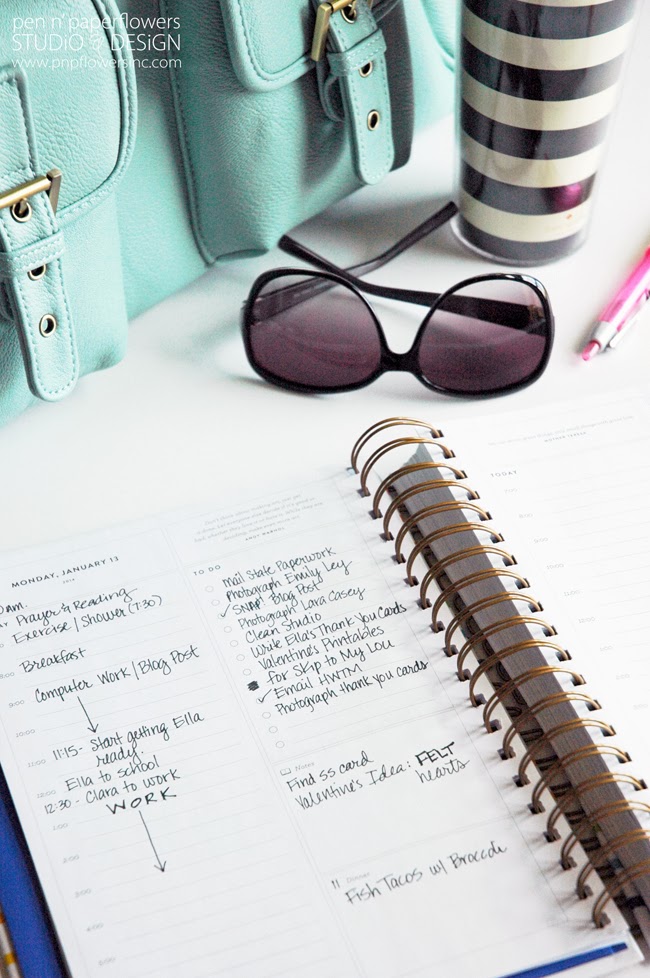 pen n' paperflowers
STUDiO & DESiGN
www.pnpflowersinc.com
TODAY
MONDAY, JANUARY 13
2014
Prayer & Reading
Exercise / Shower (7:30)
8:00
Breakfast
9:00
Computer Work / Blog Post
10:00
11:00
11:15- Start getting Ella
ready.
Ella to school
12:00
12:30 - Clara to work
WORK
1:00
2:00
3:00
4:00
5:00
ANDY WARHOL
TO DO
Mail State Paperwork
Photograph Emily Ley
SNAP! Blog Post
Photograph Lara Casey
Clean Studio
Write Ella's Thank You Cards
Valentine's Printables
for Skip to My Lou
Email HWTM
Photograph thank you cards
Notes
Find SS card
Valentine's Idea: FELT
hearts
Dinner
Fish Tacos w/ Broccoli